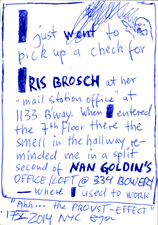 I just went to
pick up a check for
IRIS BROSCH at her
"mail station office" at
1133 B'way. When I entered
the 7th Floor there the
smell in the hallway re-
minded me in a split
second of NAN GOLDIN'S
OFFICE/LOFT @ 334 BOWERY
— where I used to work
"Ahh... the PROUST-EFFECT"
2014 NYC